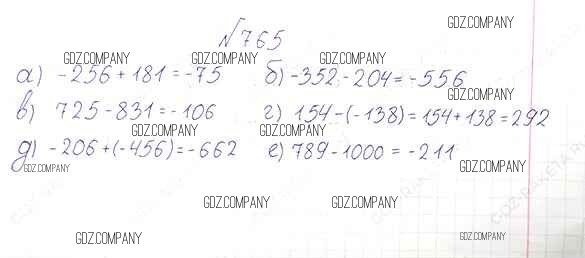 GDZ.COMPANY
№765
GDZ.COMPANY GDZ.COMPANY GDZ.COMPANY
а) -256+181=-75 б) -352-204=-556
GDZ.COMPANY
в) 725-831=-106 г) 154-(-138)=154+138=292
GDZ.COMPANY GDZ.COMPANY
д) -206+(-456)=-662 е) 789-1000=-211
GDZ.COMPANY GDZ.COMPANY
GDZ.COMPANY GDZ.COMPANY
GDZ.COMPANY GDZ.COMPANY